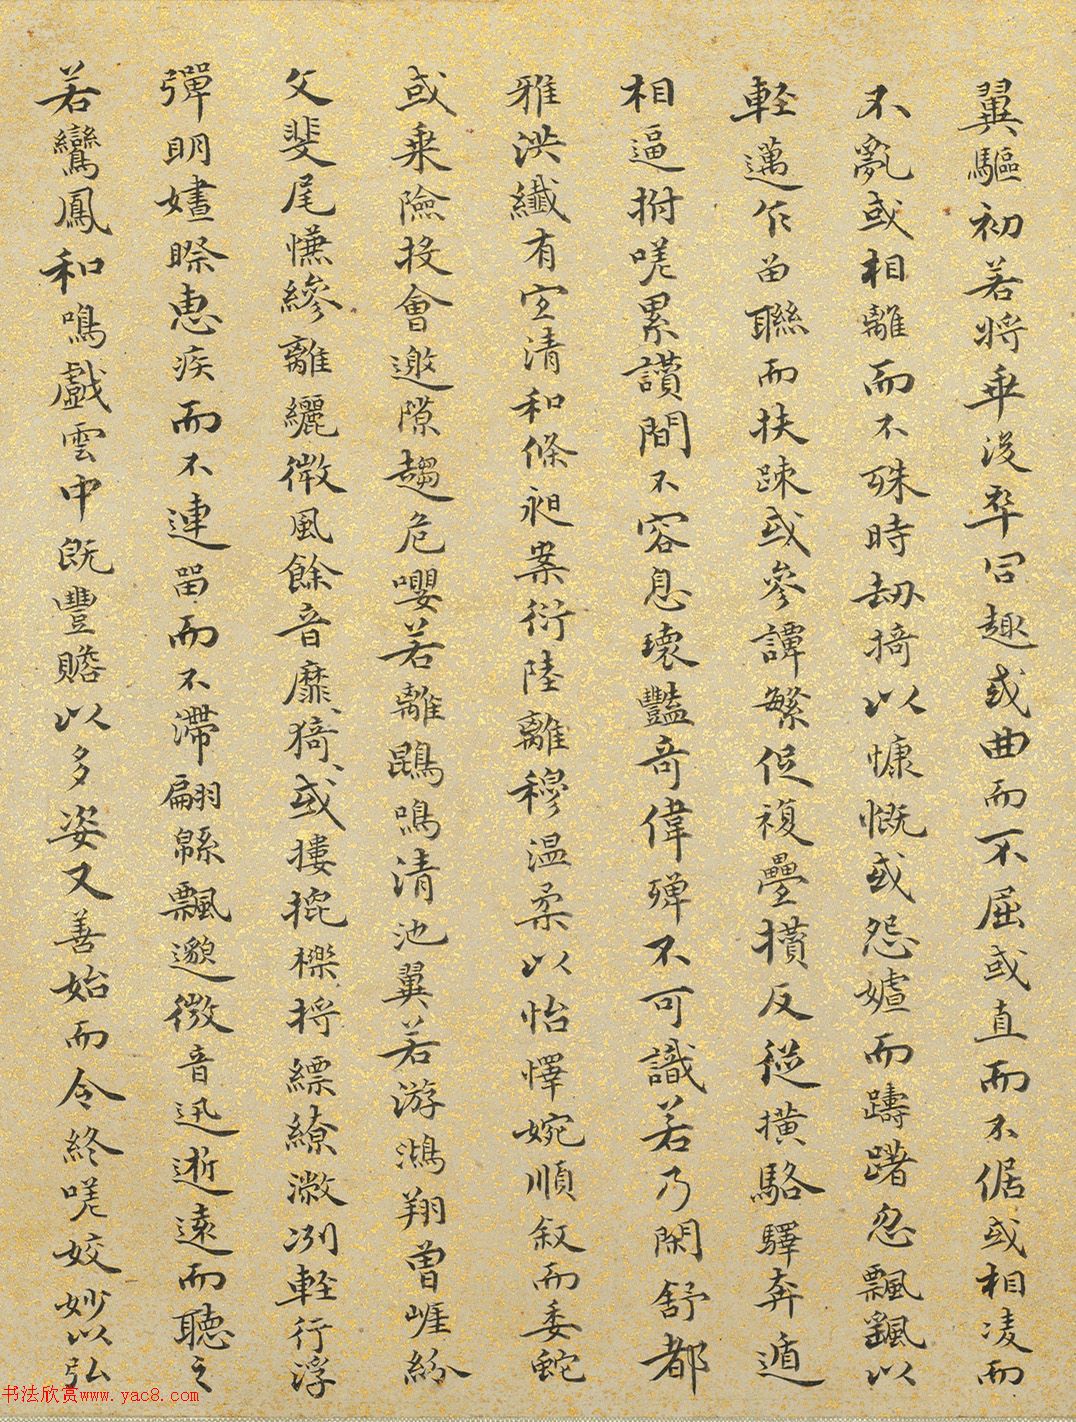 翼驅初若將乖後卒同趣或曲而不屈或直而不倨或相凌而
不亂或相離而不殊時劫掎以慷慨或怨㜘而躊躇忽飄颻以
軽邁乍留聯而扶疎或參譚繁促複疊攢反從横駱驛奔遁
相逼拊嗟累讃間不容息瓌豔奇偉殫不可識若乃閑舒都
雅洪纖有宜清和條昶案衍陸離穆温柔以怡懌婉順叙而委蛇
或乗險投會邀隙趨危嚶若離鵾鳴清池翼若游鴻翔曽崕紛
文斐尾慊縿離纚微風餘音靡、猗、或摟㧰櫟捋縹繚潎冽軽行浮
彈明嫿睽恵疾而不連留而不滯翩緜飄邈微音迅逝遠而聽之
若鸞鳳和鳴戲雲中既豐贍以多姿又善始而令終嗟姣妙以弘
书法欣赏www.yac8.com